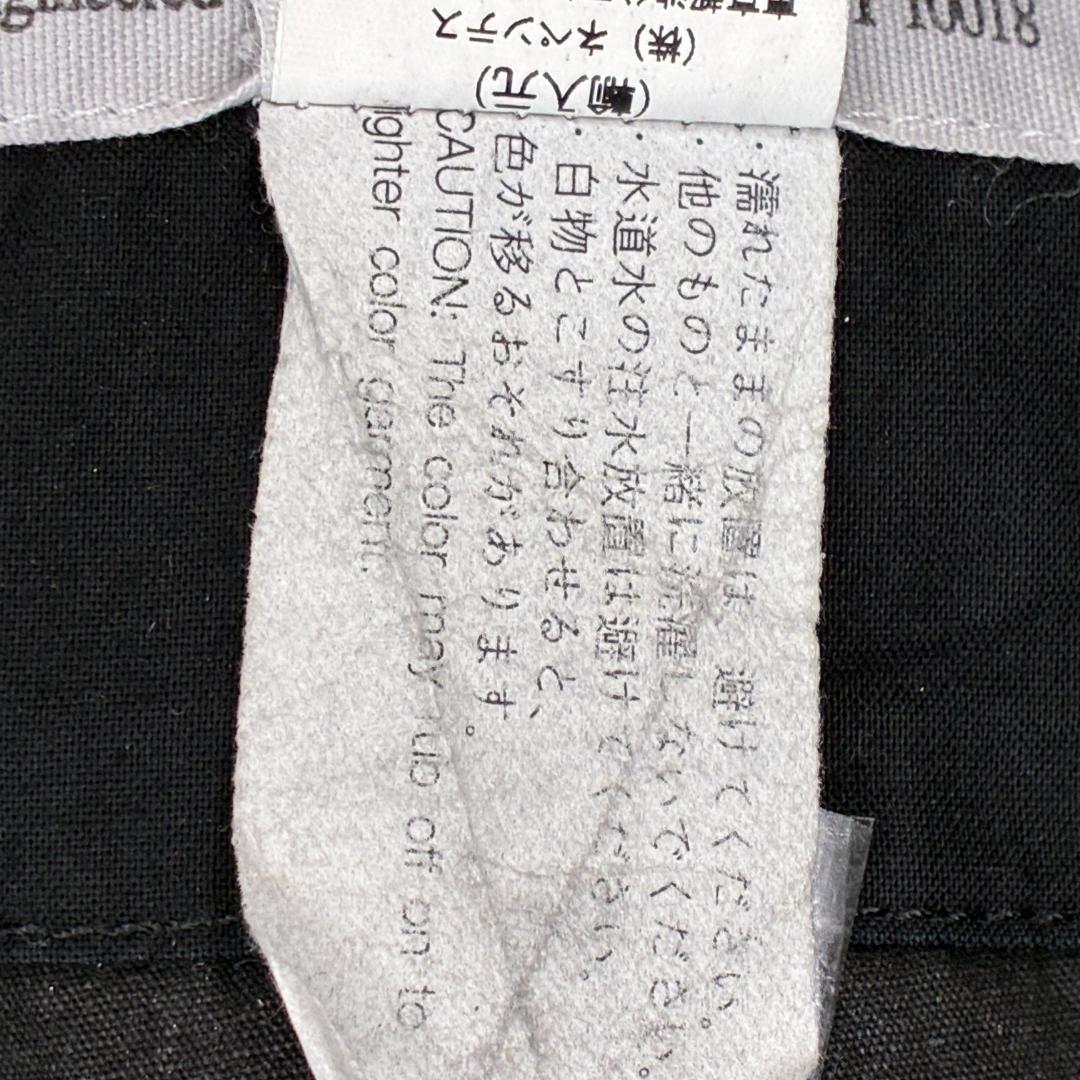 gineered
10018
(輸入元)
(株) ネペンテス
・濡れたままの放置は 避けてください。
・他のものと一緒に洗濯しないでください。
・水道水の注水放置は避けてください。
・白物とこすり合わせると、
色が移るおそれがあります。
CAUTION: The color may rub off on to
lighter color garment.